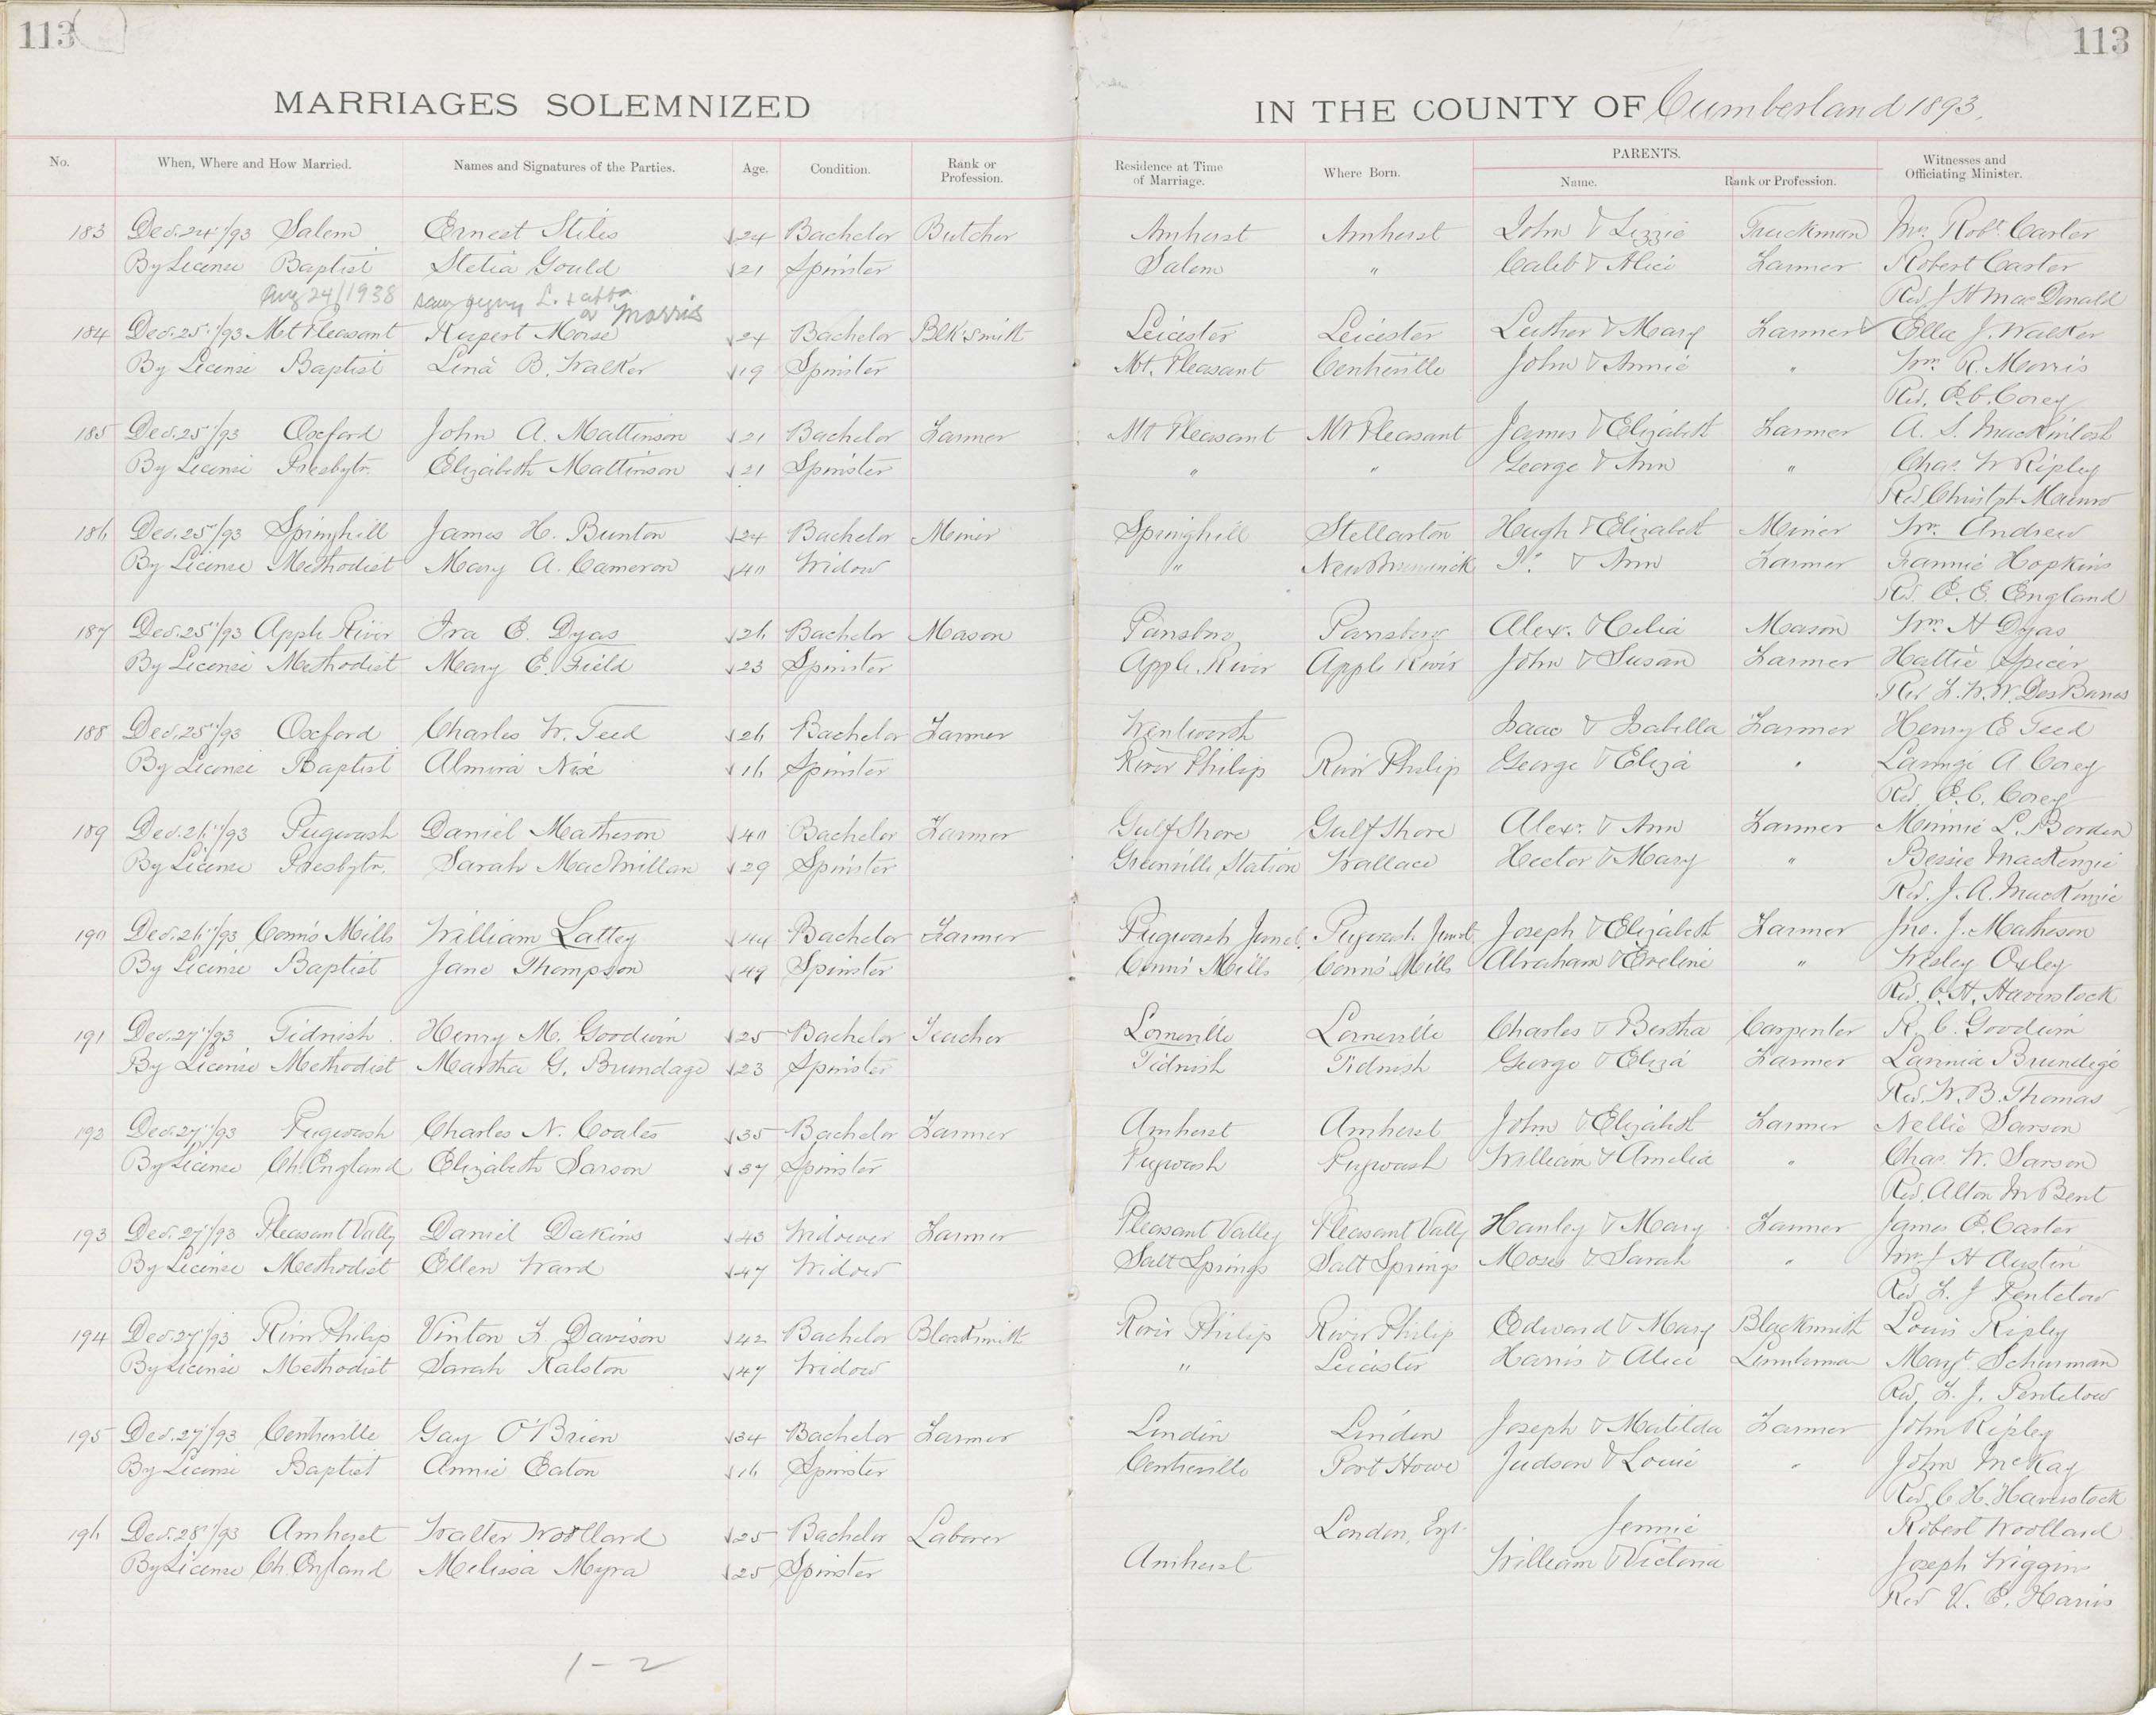 113 113
MARRIAGES SOLEMNIZED IN THE COUNTY OF Cumberland 1893.
No. When, Where and How Married. Names and Signatures of the Parties. Age. Condition. Rank or Profession. Residence at Time of Marriage. Where Born. PARENTS. Name. Rank or Profession. Witnesses and Officiating Minister.
183 Dec. 24"/93 Salem Ernest Stiles 24 Bachelor Butcher Amherst Amherst John & Lizzie Truckman Mrs. Robt. Carter
By License Baptist Stelia Gould 21 Spinster Salem " Caleb & Alice Farmer Robert Carter
Rev. J H MacDonald
Aug 24/1938 L. Morris
184 Dec. 25"/93 Mt Pleasant Rupert Morse 24 Bachelor Blk Smith Leicester Leicester Luther & Mary Farmer Ella J. Walker
By License Baptist Lena B. Walker 19 Spinster Mt. Pleasant Centreville John & Annie " Wm. R. Morris
Rev. E. C. Corey
185 Dec. 25"/93 Oxford John A. Mattinson 21 Bachelor Farmer Mt Pleasant Mt Pleasant James & Elizabeth Farmer A. S. MacKintosh
By License Presbytr. Elizabeth Mattinson 21 Spinster " " George & Ann " Chas. W Ripley
Rev. Christph Munro
186 Dec. 25"/93 Springhill James H. Bunton 24 Bachelor Miner Springhill Stellarton Hugh & Elizabeth Miner Wm. Andrew
By License Methodist Mary A. Cameron 40 Widow " New Brunswick & Ann Farmer Fannie Hopkins
Rev. E. E. England
187 Dec. 25"/93 Apple River Ira E. Dyas 26 Bachelor Mason Parrsboro Parrsboro Alex. & Celia Mason Wm. H Dyas
By License Methodist Mary E. Field 23 Spinster Apple River Apple River John & Susan Farmer Hattie Spicer
Rev F. W. W. DesBarres
188 Dec. 25"/93 Oxford Charles W. Teed 26 Bachelor Farmer Wentworth Isaac & Isabella Farmer Henry E Teed
By License Baptist Almira Nix 16 Spinster River Philip River Philip George & Eliza " A Corey
Rev. E. C. Corey
189 Dec. 26"/93 Pugwash Daniel Matheson 40 Bachelor Farmer Gulf Shore Gulf Shore Alexr. & Ann Farmer Minnie L. Borden
By License Presbytr. Sarah MacMillan 29 Spinster Greenville Station Wallace Hector & Mary " Bessie MacKenzie
Rev. J. A. MacKenzie
190 Dec. 26"/93 Conn's Mills William Lattey 44 Bachelor Farmer Pugwash Junct. Pugwash Junct. Joseph & Elizabeth Farmer Jno. J. Matheson
By License Baptist Jane Thompson 49 Spinster Conn's Mills Conn's Mills Abraham & Eveline " Wesley Oxley
Rev. C. H. Haverstock
191 Dec. 27"/93 Tidnish Henry M. Goodwin 25 Bachelor Teacher Lorneville Lorneville Charles & Bertha Carpenter R. C. Goodwin
By License Methodist Martha G. Brundage 23 Spinster Tidnish Tidnish George & Eliza Farmer Brundige
Rev. W. B. Thomas
192 Dec. 27"/93 Pugwash Charles N. Coates 35 Bachelor Farmer Amherst Amherst John & Elizabeth Farmer Nellie Sarson
By License Ch. England Elizabeth Sarson 37 Spinster Pugwash Pugwash William & Amelia " Chas. W. Sarson
Rev. Alton M Bent
193 Dec. 27"/93 Pleasant Vally Daniel Dakins 43 Widower Farmer Pleasant Valley Pleasant Vally Hanley & Mary Farmer James E. Carter
By License Methodist Ellen Ward 47 Widow Salt Springs Salt Springs Moses & Sarah " H Austin
Rev. F. J Pentelow
194 Dec. 27"/93 River Philip Vinton F. Davison 42 Bachelor Blacksmith River Philip River Philip Edward & Mary Blacksmith Louis Ripley
By License Methodist Sarah Ralston 47 Widow " Leicester Harris & Alice Lumberman Margt. Schurman
Rev. F. J. Pentelow
195 Dec. 27"/93 Centreville Gay O'Brien 34 Bachelor Farmer Linden Linden Joseph & Matilda Farmer John Ripley
By License Baptist Annie Eaton 16 Spinster Centreville Port Howe Judson & Louie " John McKay
Rev. C. H. Haverstock
196 Dec. 28"/93 Amherst Walter Woollard 25 Bachelor Laborer London, Eng. Jennie Robert Woollard
By License Ch. England Melissa Myra 25 Spinster Amherst William & Victoria Joseph Wiggins
Rev V. E. Harris
1-2